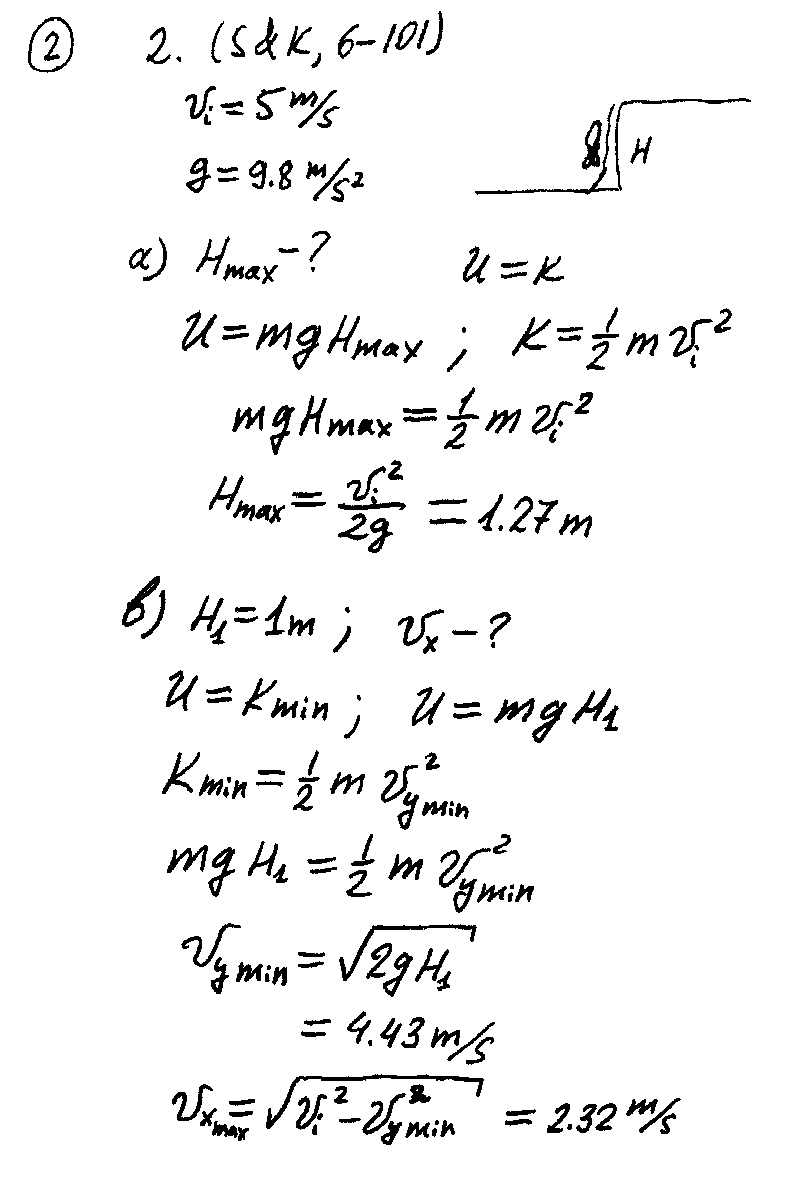 ② 2. (S&K, 6-101)
vᵢ = 5 m/s
g = 9.8 m/s²
H
a) Hmax - ? U = K
U = mgHmax ; K = 1/2 m vᵢ²
mgHmax = 1/2 m vᵢ²
Hmax = vᵢ²/2g = 1.27 m
b) H₁ = 1m ; vₓ - ?
U = Kmin ; U = mgH₁
Kmin = 1/2 m v²y min
mgH₁ = 1/2 m v²y min
vy min = √2gH₁
= 4.43 m/s
vx max = √vᵢ² - v²y min = 2.32 m/s